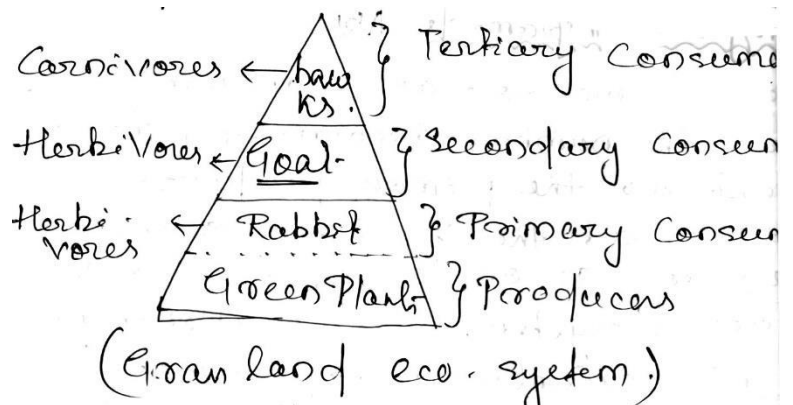 Carnivores ← haw ks. } Tertiary Consume
Herbivores ← Goat } Secondary Consum
Herbi. vores ← Rabbit } Primary Consum
Green Plants } Producers
(Gran land eco. system.)